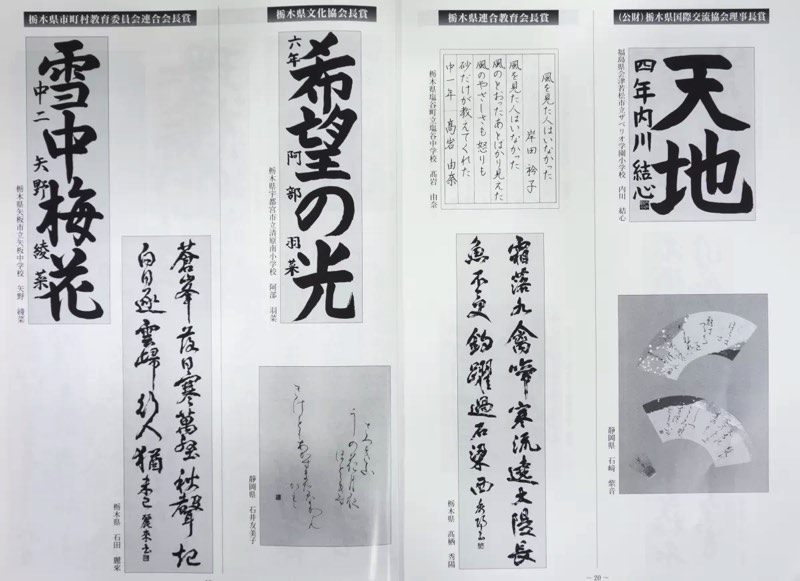 (公財)栃木県国際交流協会理事長賞
天地
四年内川結心
福島県会津若松市立ザベリオ学園小学校 内川 結心
静岡県 石崎 紫音
栃木県連合教育会長賞
風を見た人はいなかった
岸田衿子
風を見た人はいなかった
風のとおったあとばかり見えた
風のやさしさも怒りも
砂だけが教えてくれた
中一年 髙岩由奈
栃木県塩谷町立塩谷中学校 髙岩 由奈
霜落水禽啼寒流遠大隄長
魚不更釣躍過石梁西
栃木県 髙栖 秀陽
— 20 —
栃木県文化協会長賞
希望の光
六年 阿部羽菜
栃木県宇都宮市立清原南小学校 阿部 羽菜
静岡県 石井友美子
栃木県市町村教育委員会連合会長賞
雪中梅花
中二 矢野綾菜
栃木県矢板市立矢板中学校 矢野 綾菜
蒼峯落日寒萬壑秋聲起
白日逐雲帰行人猶未已 麗来書
栃木県 石田 麗来